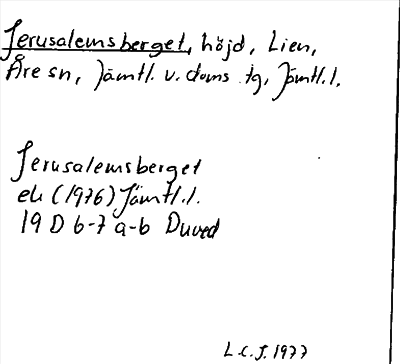 Jerusalemsberget, höjd, Lien,
Åre sn, Jämtl. v. doms. tg, Jämtl. l.
Jerusalemsberget
ek (1976) Jämtl. l.
19 D 6-7 a-b Duved
L.C.J. 1977